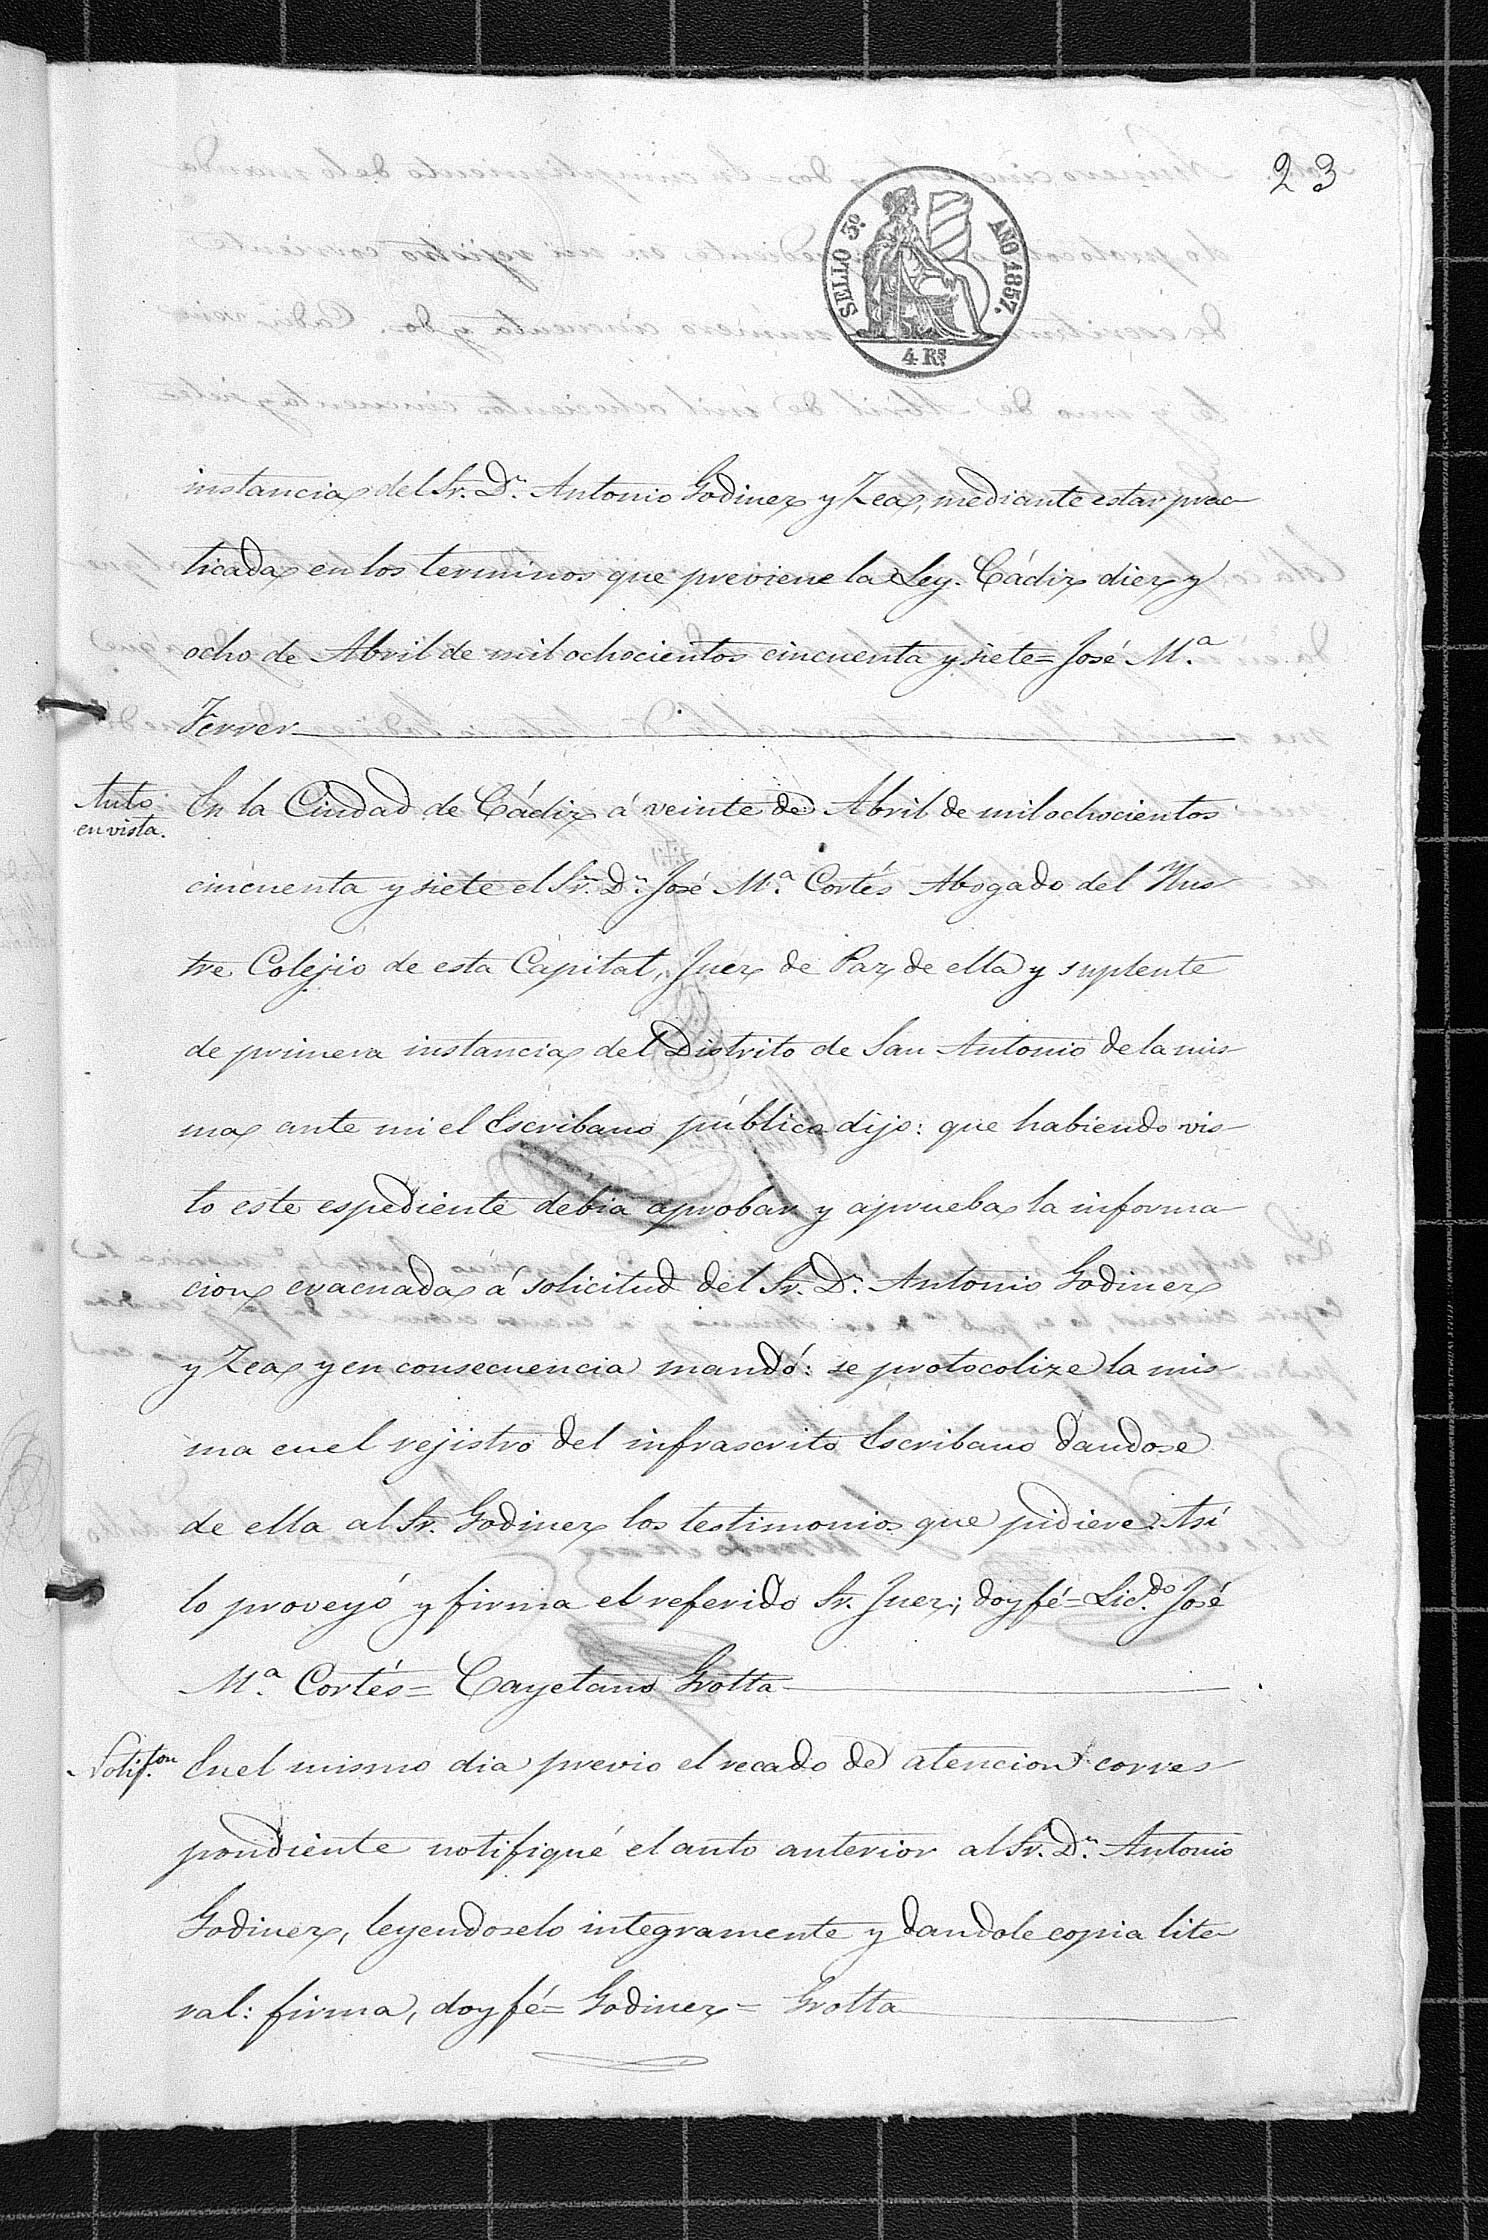 23
SELLO 3º AÑO 1857.
4 Rˢ
instancia del Sr. Dⁿ. Antonio Godinez y Zea, mediante estar prac-
ticada en los terminos que previene la Ley. Cádiz diez y
ocho de Abril de mil ochocientos cincuenta y siete= José M.ª
Ferrer
Auto en vista.
En la Ciudad de Cádiz á veinte de Abril de mil ochocientos
cincuenta y siete el Sr. Dⁿ. José M.ª Cortés Abogado del Ilus-
tre Colejio de esta Capital, Juez de Paz de ella y suplente
de primera instancia del Distrito de San Antonio de la mis-
ma ante mi el Escribano público dijo: que habiendo vis-
to este espediente debia aprobar y aprueba la informa-
cion evacuada á solicitud del Sr. Dⁿ. Antonio Godinez
y Zea y en consecuencia mandó: se protocolize la mis-
ma en el rejistro del infrascrito Escribano dandose
de ella al Sr. Godinez los testimonios que pidiere. Asi
lo proveyó y firma el referido Sr. Juez; doy fé= Lic.do José
M.ª Cortés= Cayetano Grotta
Notif.on
En el mismo dia previo el recado de atencion corres-
pondiente notifiqué el auto anterior al Sr. Dⁿ. Antonio
Godinez, leyendoselo integramente y dandole copia lite-
ral: firma, doy fé= Godinez= Grotta